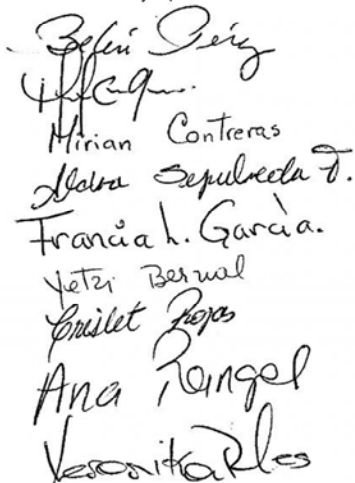 Belén Pérez
Mirian Contreras
Sepulveda T.
Francia L. García.
Yetzi Bernal
Crislet Rojas
Ana Rangel
Veronika